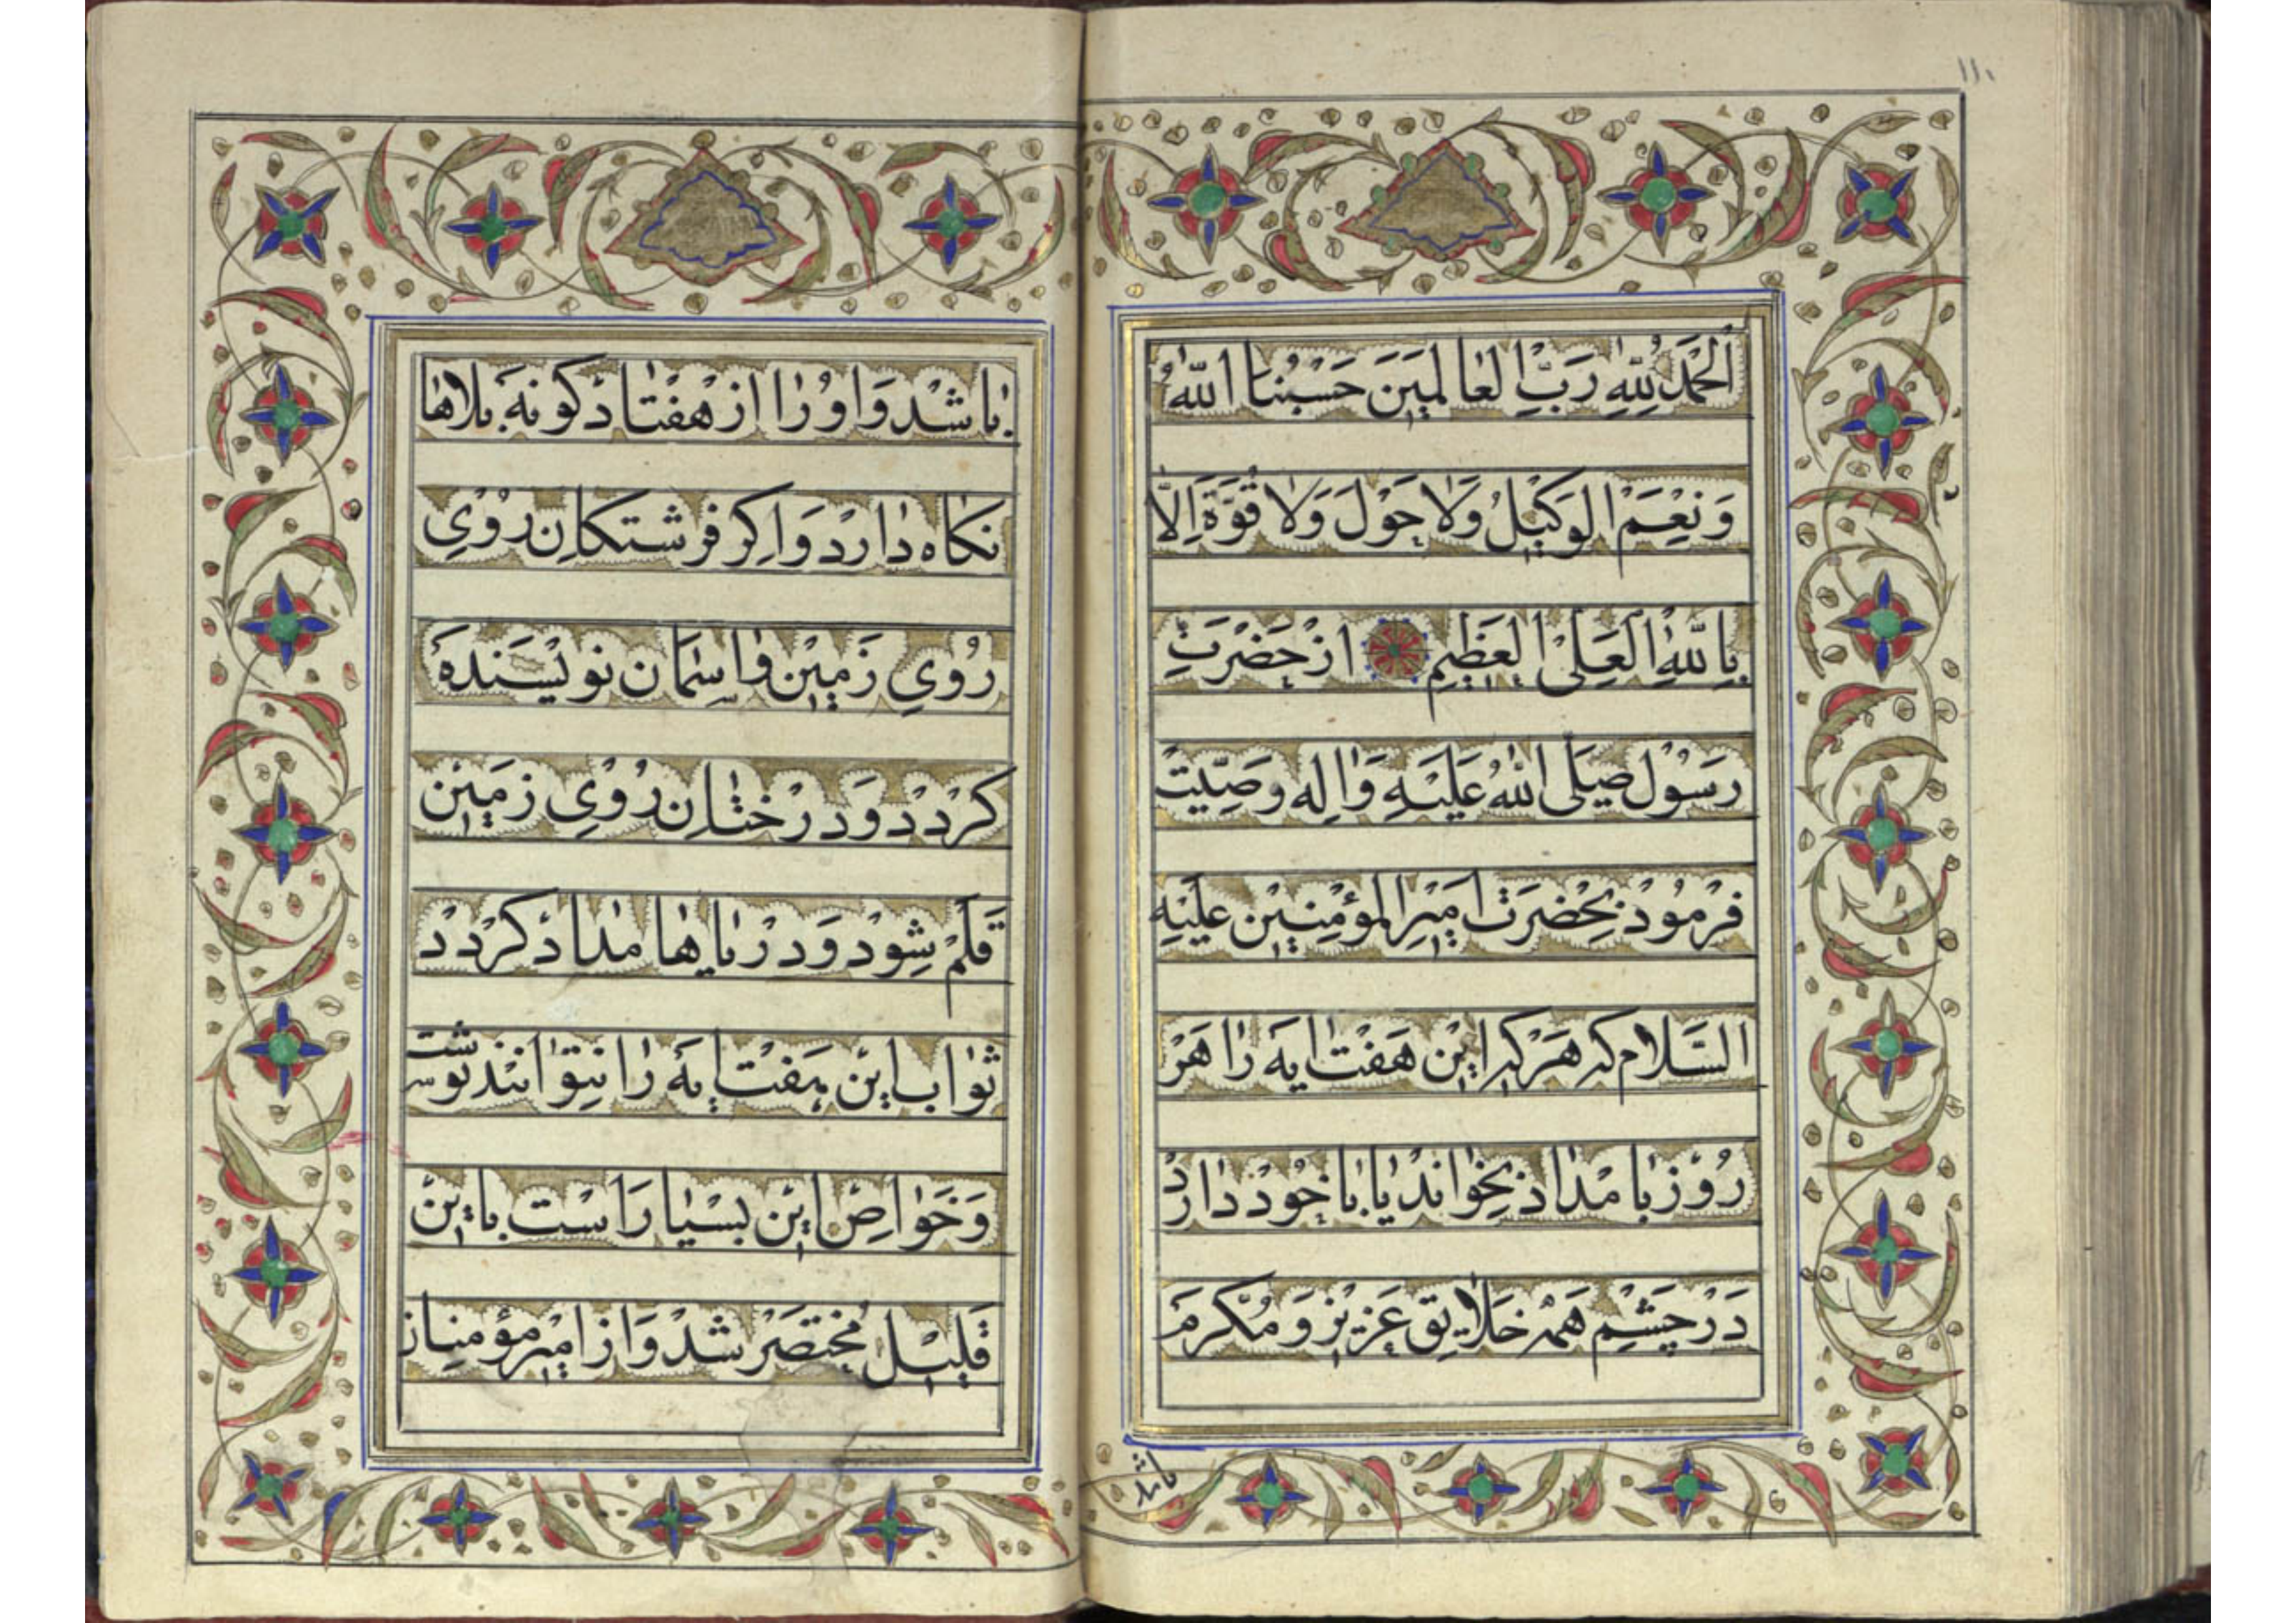 ١١٠
اَلْحَمْدُ لِلّٰهِ رَبِّ الْعٰالَمِيَنَ حَسْبُنا اللّٰهُ
وَنِعْمَ الوَكيْلُ وَلاٰ حَوْلَ وَلاٰ قُوَّةَ اِلّاٰ
بِاللّٰهِ الْعَلىْ الْعَظِيمِ از حَضْرَتِ
رَسُوْل صَلَى اللّٰهُ عَلَيْهِ وَاٰلِه وَصِيّتْ
فَرْمُوْدْ بِحْضرَت اميْرِالمؤمِنِيْنِ عَلَيْهِ
السَّلاٰم كه هَركِه ايْن هَفْتْ ايَه رٰا هَرْ
رُوْزْ بٰامْدٰادْ بِخْوٰانَدْ يٰا بٰاخُوْدْ دٰارَدْ
دَرْ چَشْمِ هَمَهْ خَلاٰيِقْ عَزيْزْ وَ مُكْرمَ
باشد
بٰاشَدْ وَاوُرْا ازْ هَفْتٰادْ كوُنَه بَلاهٰا
نكٰاه دٰارَدْ وَاكِر فرشتكان رُوْيِ
رُوْيِ زَميْن وٰاسِمٰان نويْسَنْدَهْ
كَرْدَدْ وَدِرَخْتٰان رُوْيِ زَميْن
قَلَمْ شِوَدْ وَ دَرْيٰاهٰا مدٰادْ كَرْدَدْ
ثوٰاب ايْن هَفْت ايَه رٰا نتوٰانَنْد نوشت
وَخَوٰاصِ ايْن بسْيٰار اَسْت بايْن
قَليْل مُخْتَصَرْ شدْ وَ از اميْر مؤمنان